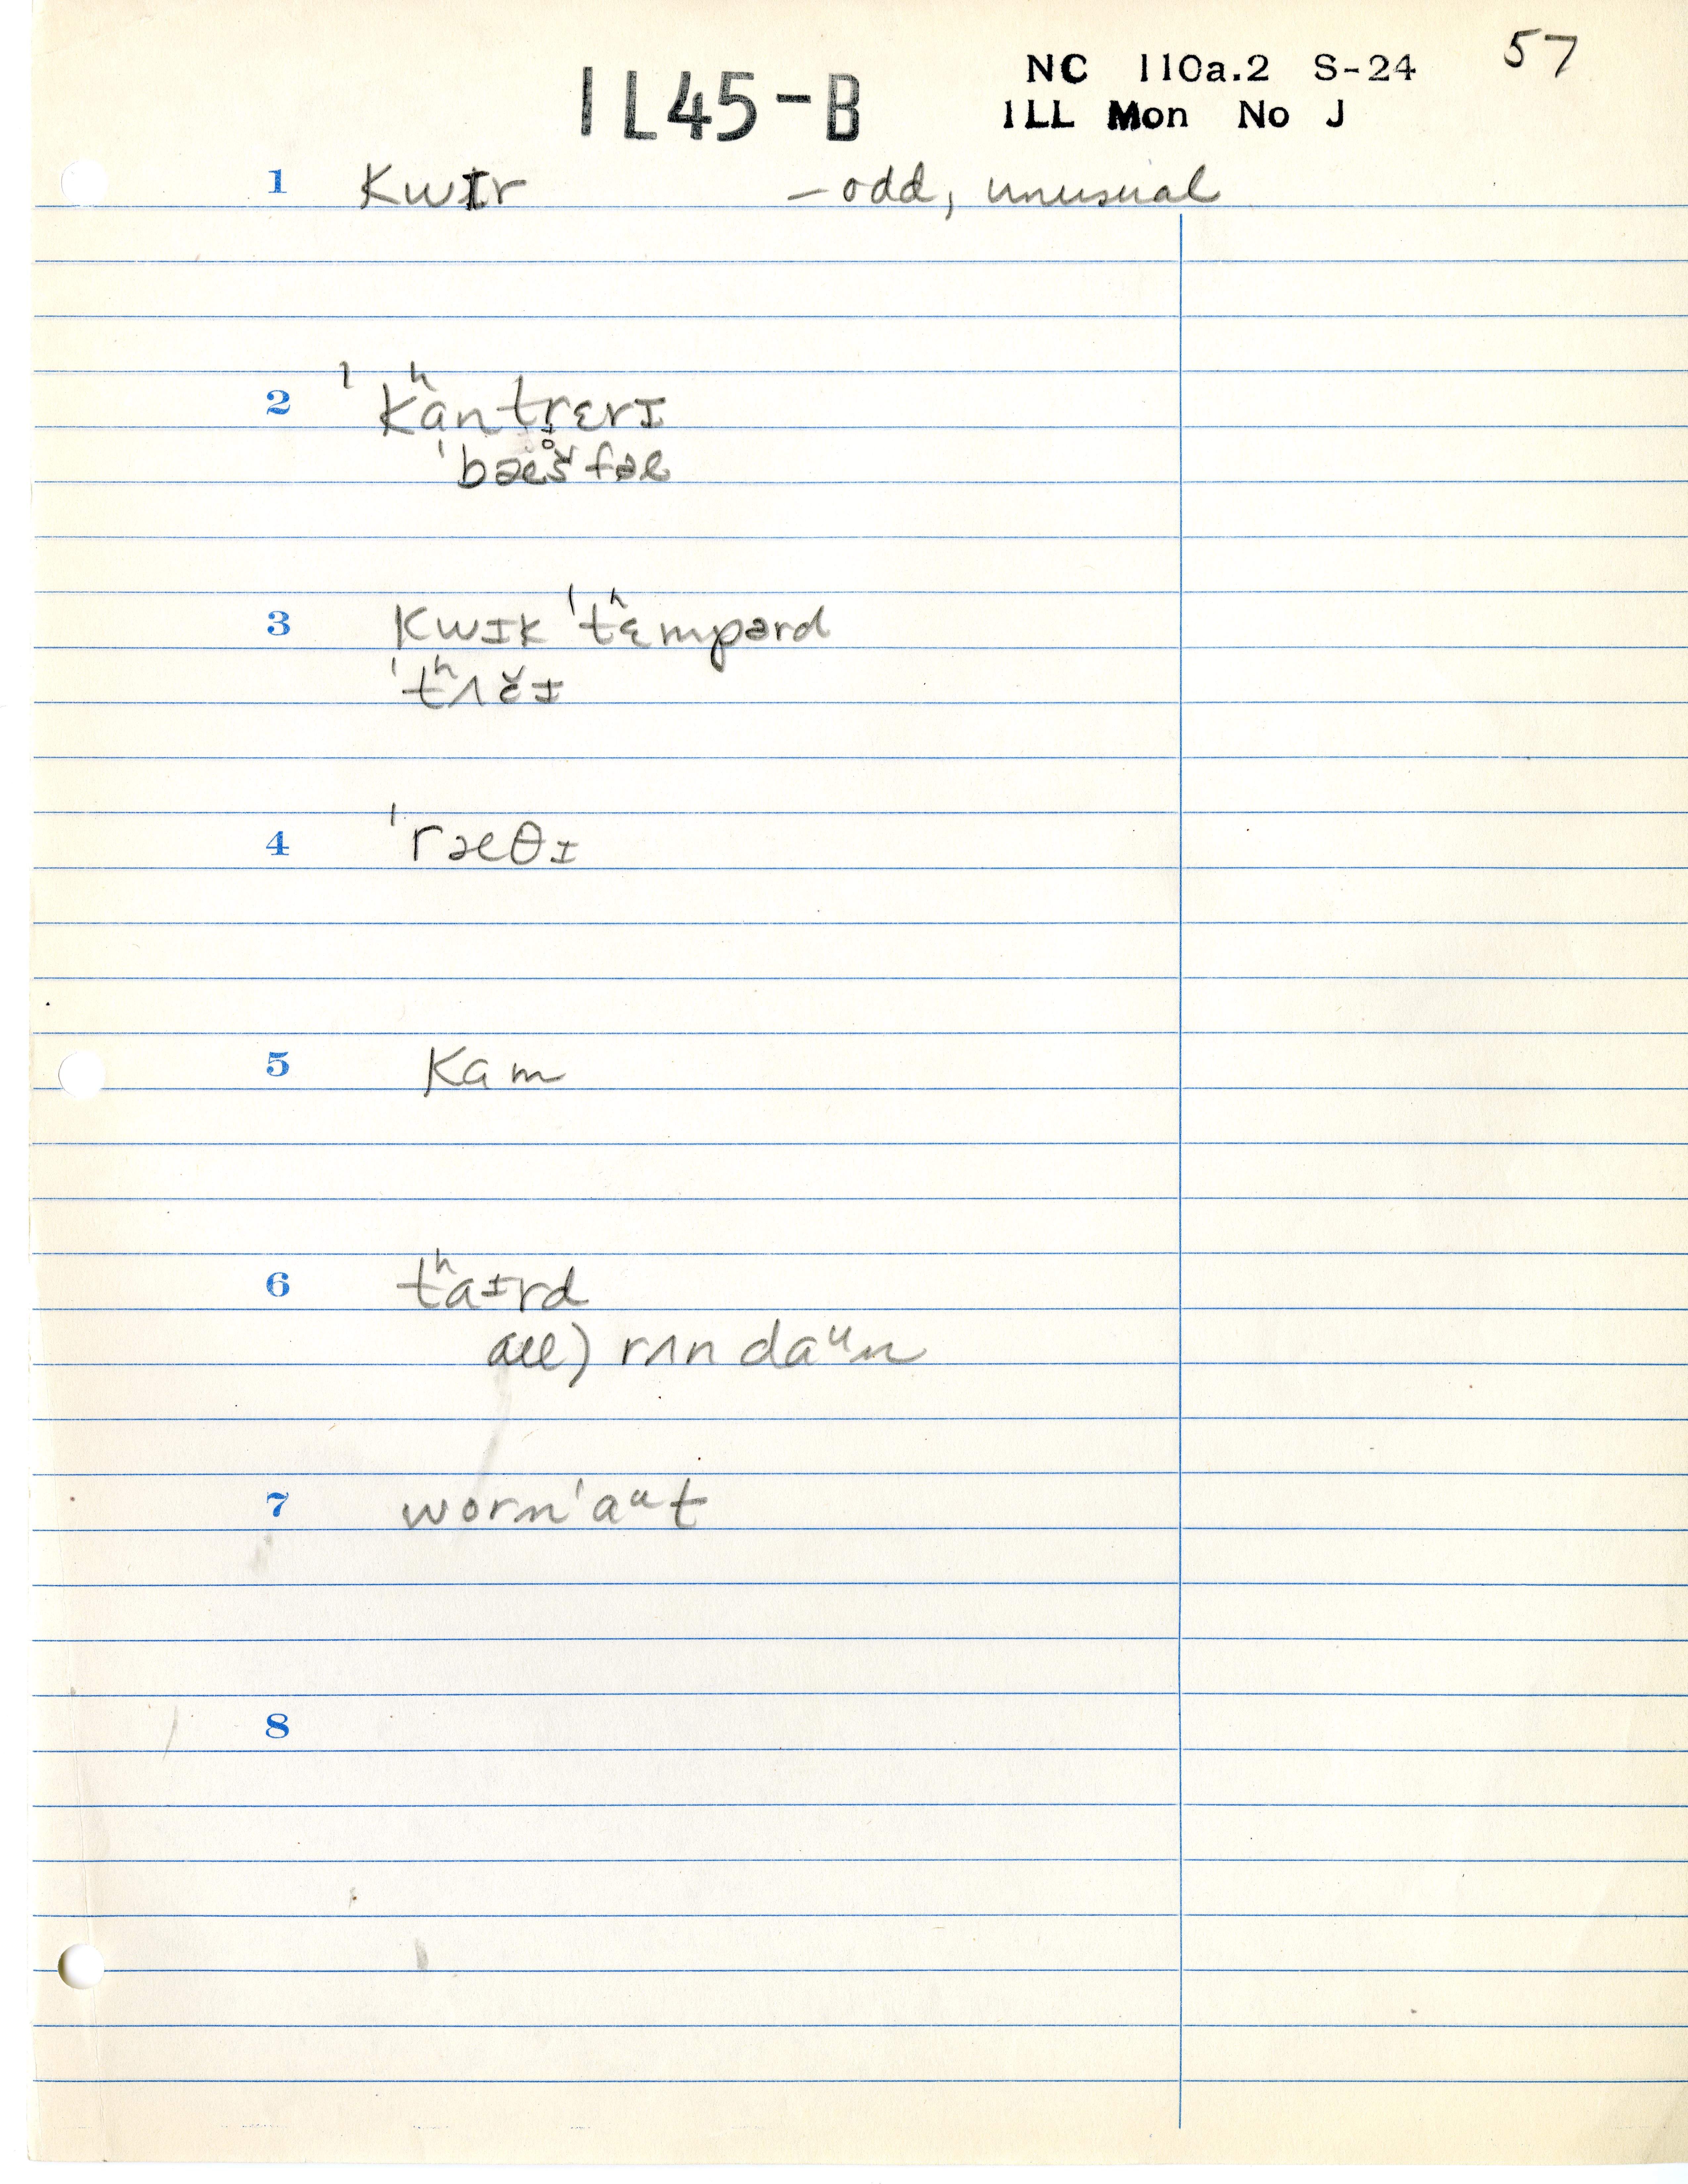 57
NC 110a.2 S-24
IL45-B
ILL Mon No J
1 kwɪr – odd, unusual
2 ˈkʰantrɛrɪ
ˈbæšfəl
3 kwɪk ˈtʰɛmpərd
ˈtʰʌčɪ
4 ˈræθɪ
5 kam
6 tʰaɪrd
all) rʌn daᵘn
7 wornˈaᵘt
8